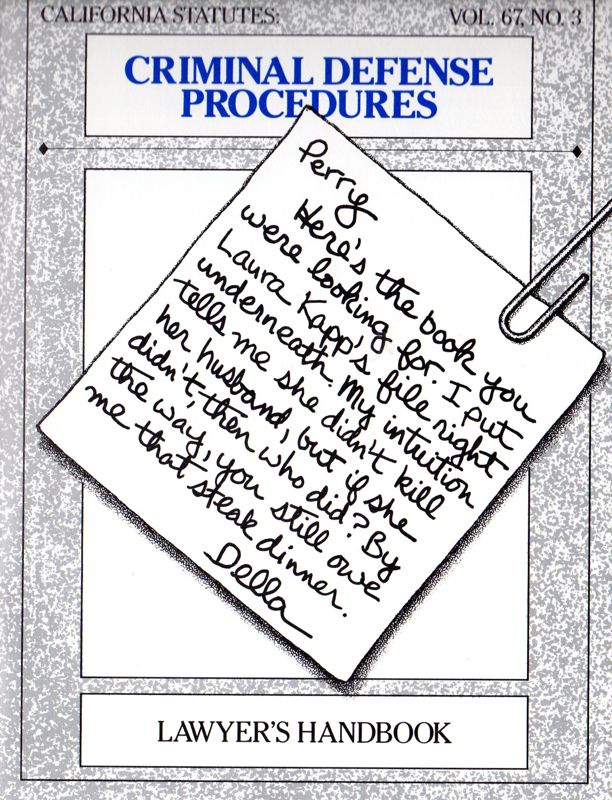 CALIFORNIA STATUTES: VOL. 67, NO. 3
CRIMINAL DEFENSE
PROCEDURES
Perry
Here's the book you
were looking for. I put
Laura Kapp's file right
underneath. My intuition
tells me she didn't kill
her husband, but if she
didn't, then who did? By
the way, you still owe
me that steak dinner.
Della
LAWYER'S HANDBOOK